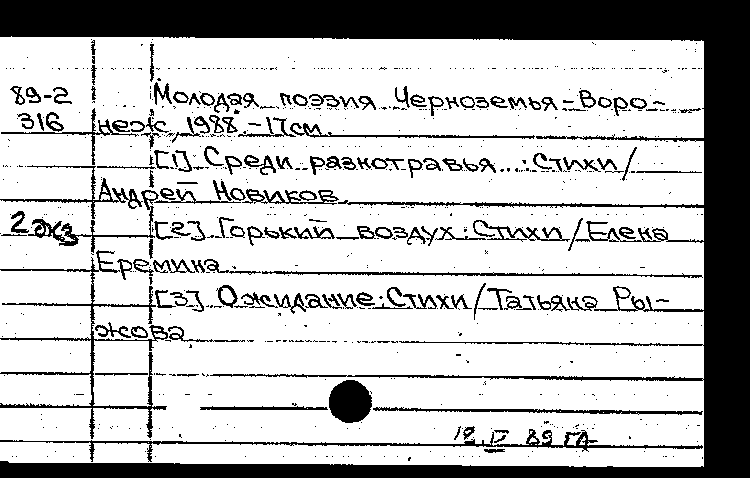 89-2 Молодая поэзия Черноземья - Воро-
316 неж, 1988. - 17см.
[1] Среди разнотравья...: Стихи /
Андрей Новиков.
2 экз [2] Горький воздух: Стихи / Елена
Еремина.
[3] Ожидание: Стихи / Татьяна Ры-
жова
12.IV 89 ГА